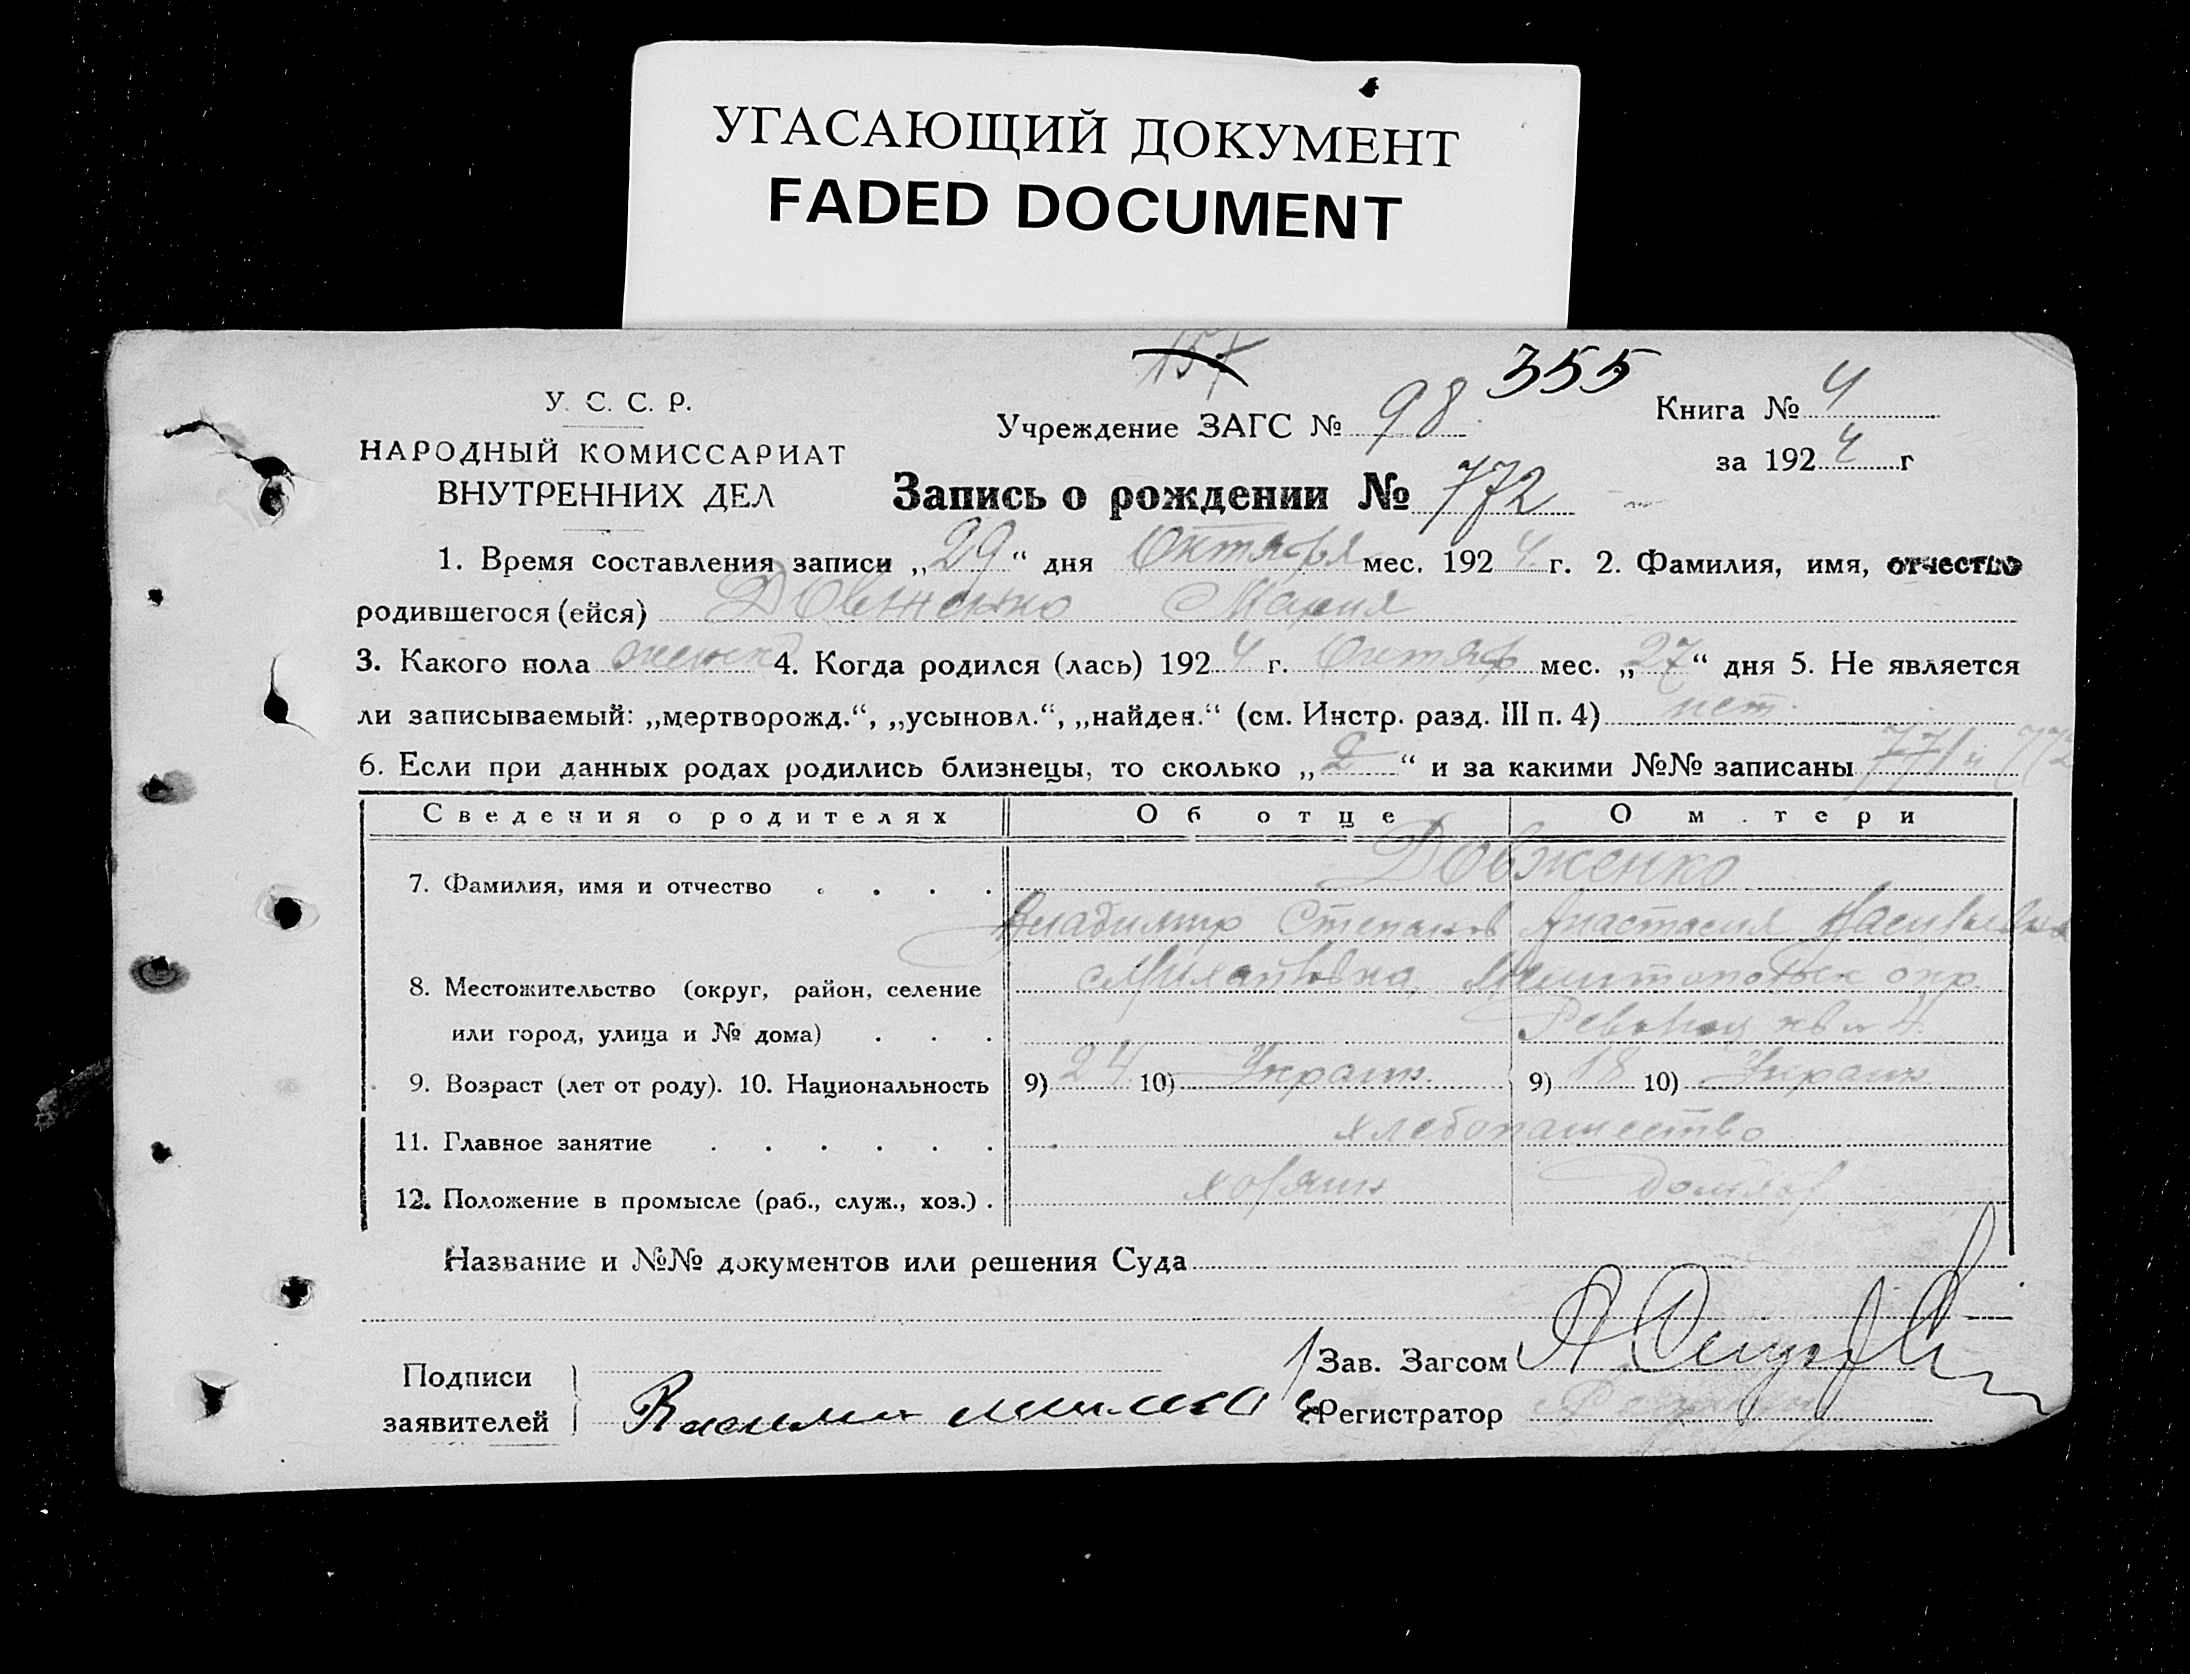 УГАСАЮЩИЙ ДОКУМЕНТ
FADED DOCUMENT
157
355
У. С. С. Р.
НАРОДНЫЙ КОМИССАРИАТ
ВНУТРЕННИХ ДЕЛ
Учреждение ЗАГС № 98
Книга № 4
за 1924 г
Запись о рождении № 772
1. Время составления записи „29“ дня Октября мес. 1924 г. 2. Фамилия, имя, отчество
родившегося (ейся) Довженко Мария
3. Какого пола женск 4. Когда родился (лась) 1924 г. Октяб мес. „27“ дня 5. Не является
ли записываемый: „мертворожд.“, „усыновл.“, „найден.“ (см. Инстр. разд. III п. 4) нет.
6. Если при данных родах родились близнецы, то сколько „2“ и за какими №№ записаны 771 и 772
Сведения о родителях Об отце О м.тери
7. Фамилия, имя и отчество . . . . Довженко
Владимир Степанов Анастасия Васильевна
8. Местожительство (округ, район, селение Михайловка, Мелитопольск окр.
или город, улица и № дома) . . .
9. Возраст (лет от роду). 10. Национальность 9) 24 10) Украин. 9) 18 10) Украин
11. Главное занятие . . . . . . хлебопашество
12. Положение в промысле (раб., служ., хоз.) . хозяин домхоз
Название и №№ документов или решения Суда
Подписи
заявителей
Зав. Загсом
Регистратор